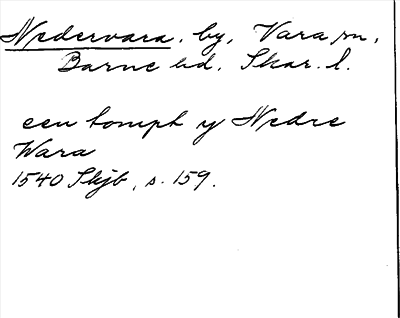 Nedervara, by, Vara sn,
Barne hd. Skar. l.
een tompth y Nedre
Wara
1540 Skjb, s. 159.